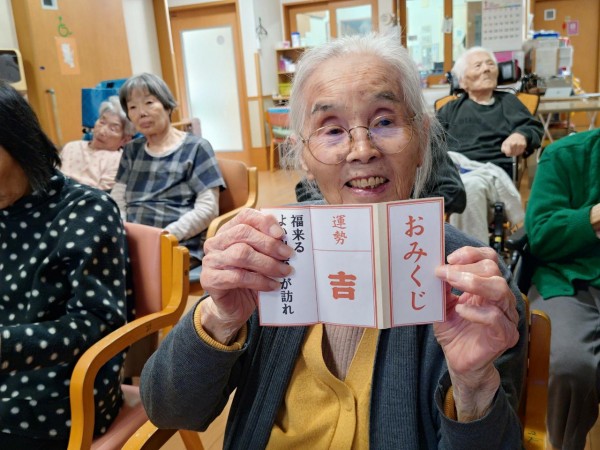 おみくじ
運勢
吉
福来る
が訪れ